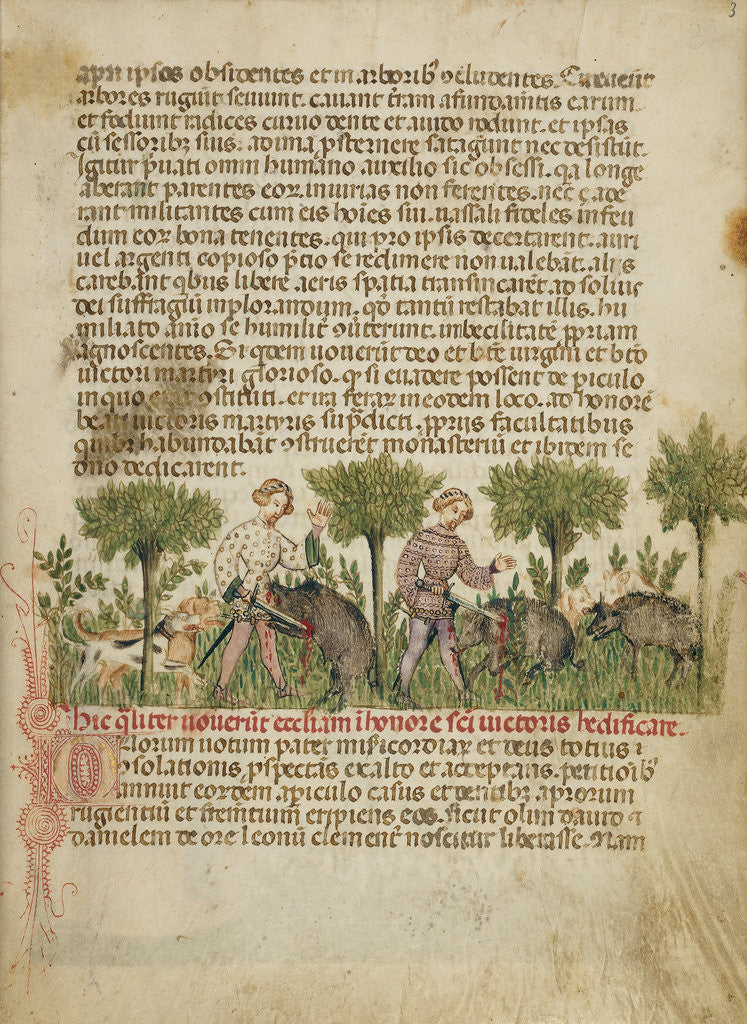 3
apri ipsos obsidentes et in arborib; ꝯcludentes. Circueūt
arbores rugiūt seuiunt. cauant t̄ram a fundam̄tis earum
et fodiunt radices curuo dente et auido rodunt. et ipsas
cū sessorib; suis. ad ima ꝓsternere satagunt nec desistūt.
Igitur p̄uati omni humano auxilio sic obsessi. qa longe
aberant parentes eoꝝ. iniurias non ferentes. nec cade
rant militantes cum eis hoīes sui. uassali fideles in feu
dum eoꝝ bona tenentes. qui pro ipsis decertarent. auri
uel argenti copioso p̄cio se redimere non ualebāt. aliis
carebānt qbus libere aeris spatia transmearēt. ad solius
dei suffragiū inplorandum. qd tantū restabat illis. hu
miliato aīo se humilit̄ ꝯuterunt. imbecilitatē ꝓpriam
agnoscentes. Si qdem uouerūt deo et bte uirgīni et btō
uictori martyri glorioso. qd si euadere possent de piculo
in quo erāt ꝯstituti. et ira feraꝝ in eodem loco. ad honorē
beati uictoris martyris sup̄dicti. ꝓpriis facultatibus
quib; habundabāt ꝯstruerēt monasteriū et ibidem se
dn̄o dedicarent.
hic qliter uouerūt eccliam ī honore sci uictoris hedificare.
Quorum uotum pater misicordiaꝝ et deus totius
ꝯsolationis, ꝓspectās ex alto et acceptans. petitioib;
annuit eordem a piculo casus et dentib; aprorum
rugientiū et fremētium eripiens eos. sicut olim dauid
danielem de ore leonū clement̄ noscitur liberasse. Nam